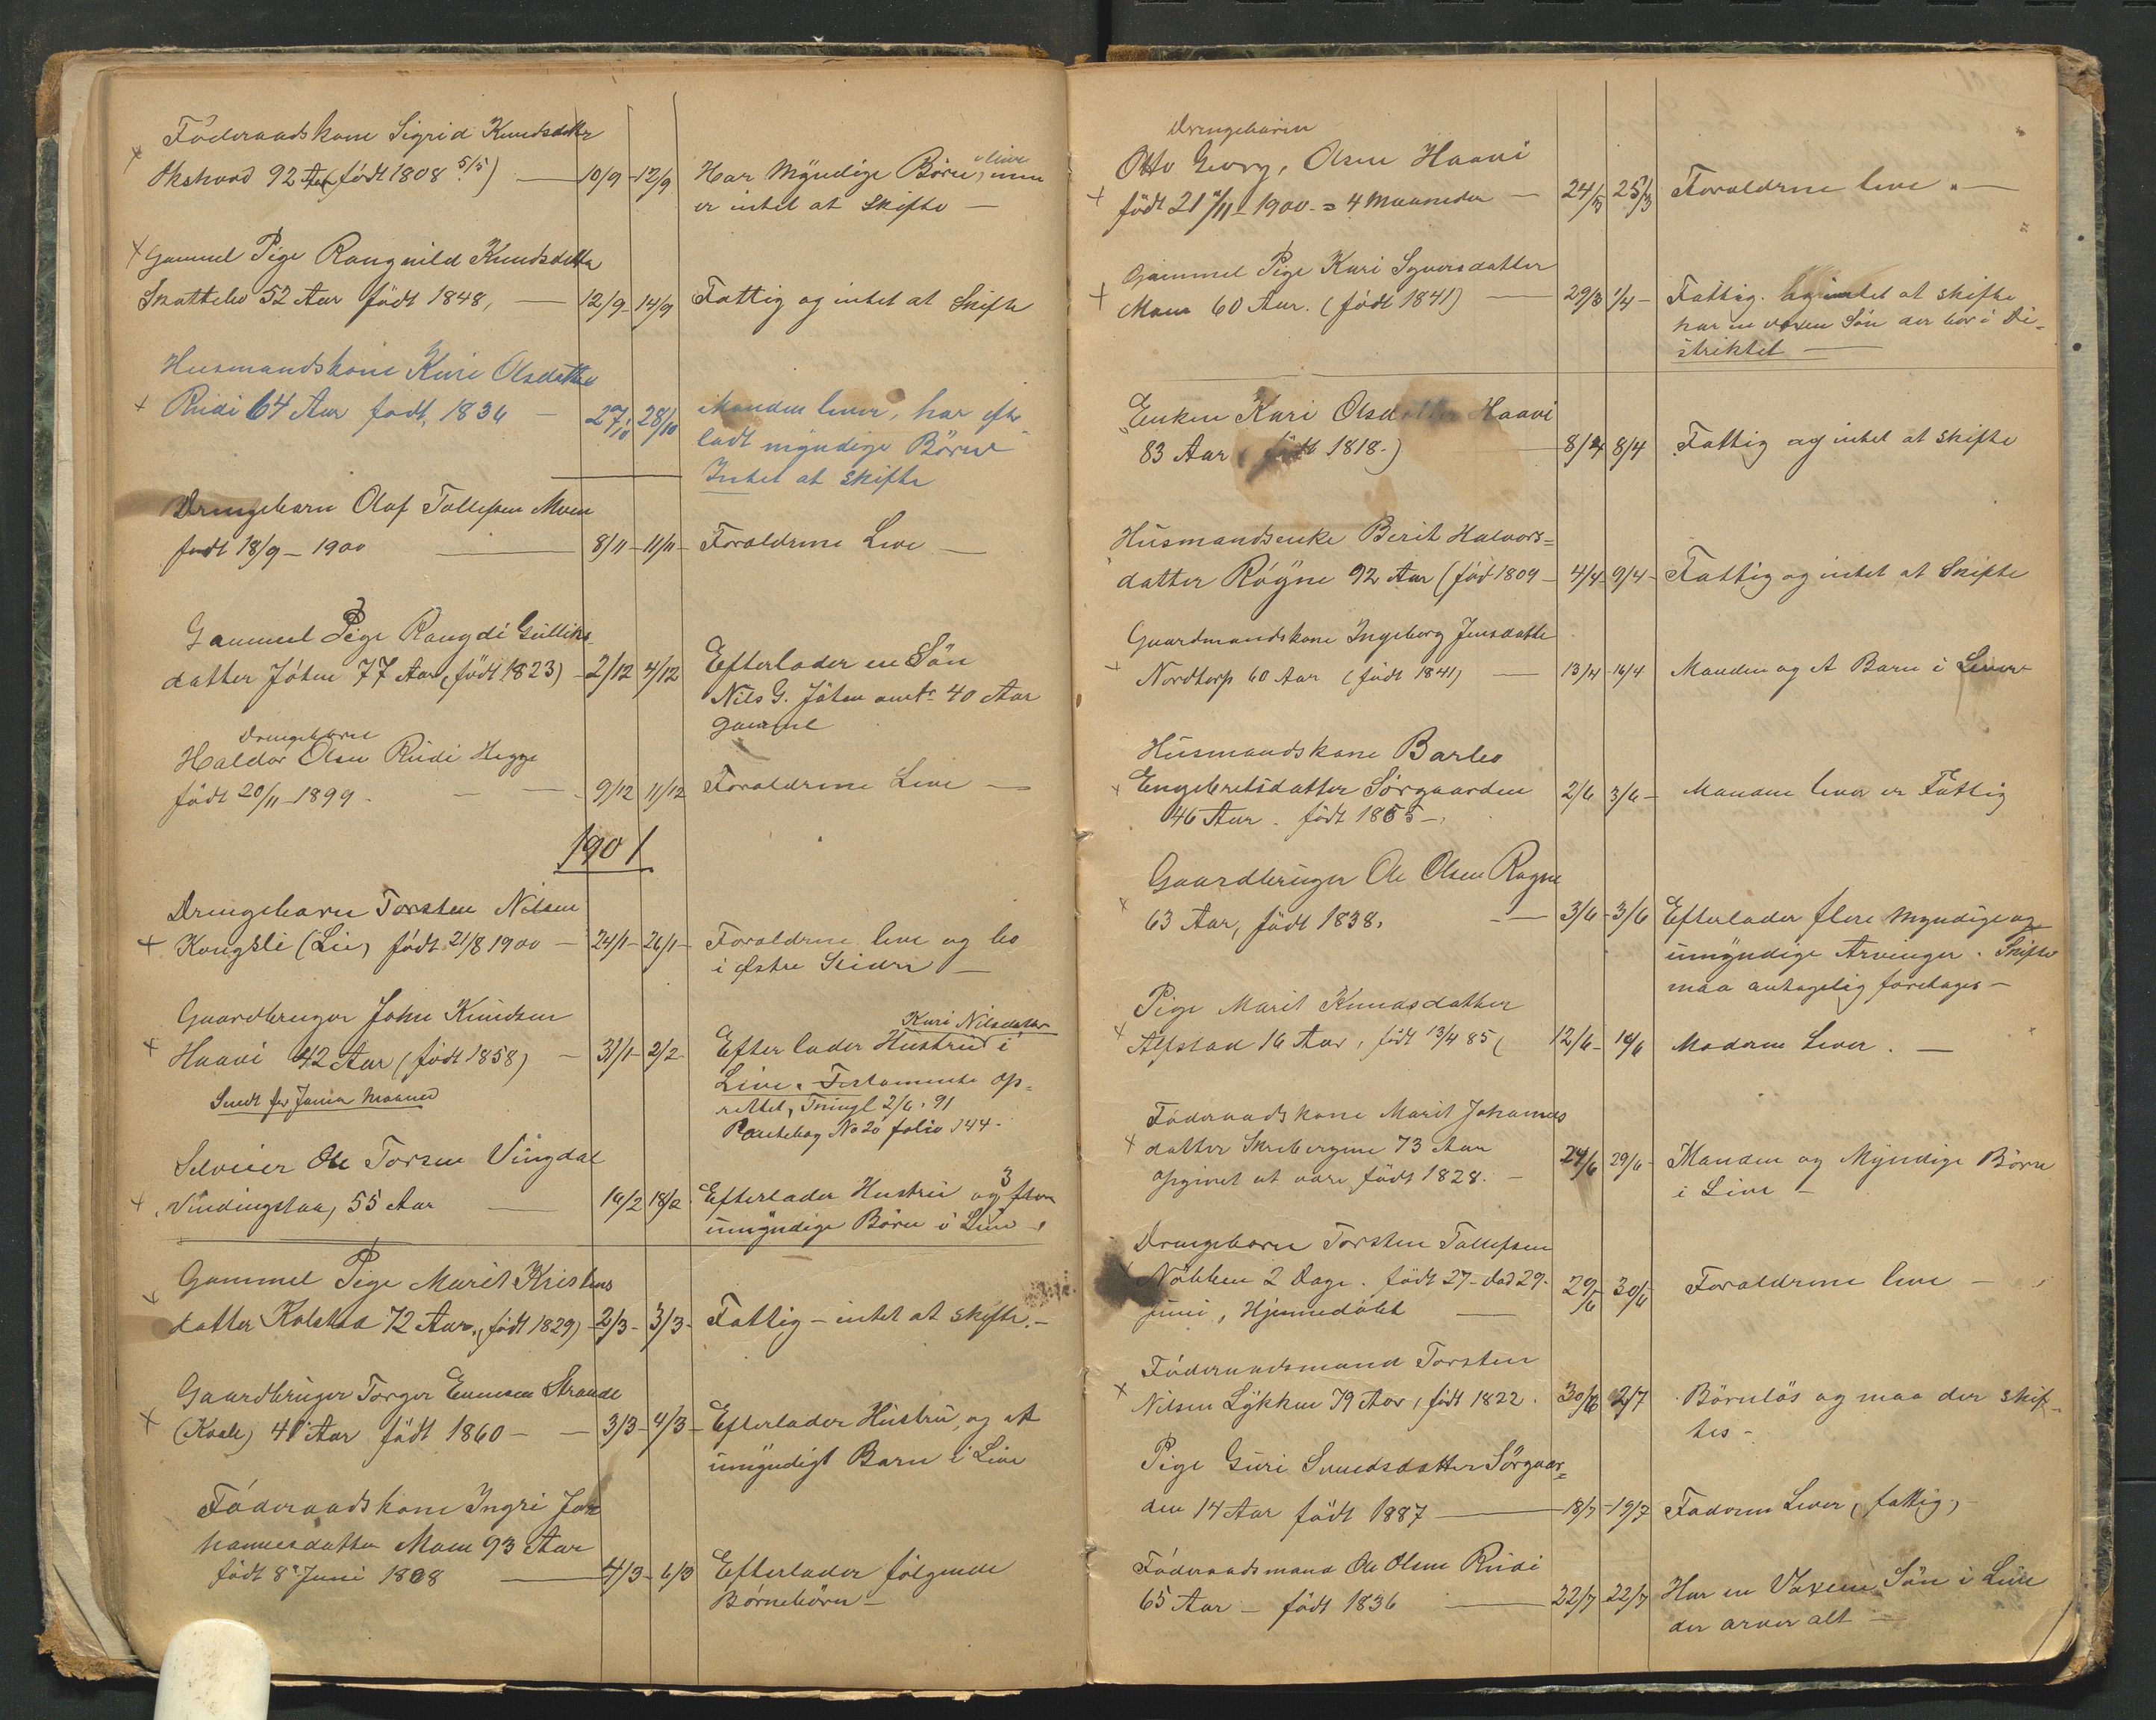 Föderaadskone Sigrid Knudsdatter
92 Aar (födt 1808 5/5) — 10/9 - 12/9 Har Myndige Börn i live, men
er intet at Skifte —
Gammel Pige Rangnild Knudsdatter
Skattebo 52 Aar födt 1848, — 12/9 - 14/9 Fattig og intet at Skifte
Husmandskone Kari Olsdatter
Rudi 64 Aar födt 1836 — 27/10 28/10 Manden lever, har efter
ladt myndige Börn
Intet at skifte
Drengebarn Olaf Tollefsen Moen
födt 18/9 - 1900 — 8/11 - 11/11 - Forældrene Leve —
Gammel Pige Rangdi Gulliks
datter Jöten 77 Aar (födt 1823) - 2/12 4/12 Efterlader en Sön
Nils G. Jöten omtr 40 Aar
gammel
Drengebarn
Haldor Olsen Rudi Hegge
födt 20/11 - 1899 - — 9/12 11/12 Forældrene Leve —
1901
Drengebarn Torsten Nilsen
Kongsli (Lie) födt 21/8 1900 — 24/1 - 26/1 - Forældrene leve og bo
i Østre Slidre —
Gaardbruger John Knudsen
Haavi 42 Aar (födt 1858) — 31/1 - 2/2 - Efterlader Hustru Kari Nilsdatter i
Live. Testamente op-
rettet, Tingl 2/6 - 91
Pantebog No 20 folio 144 -
Sendt for Januar Maaned
Selveier Ole Torsen Vingdal
Vindingstaa, 55 Aar — 16/2 18/2 Efterlader Hustru og 3 flere
umyndige Börn i Live -
Gammel Pige Marit Kristens
datter Kolstad 72 Aar, (födt 1829) - 2/3 - 3/3 - Fattig - intet at skifte. -
Gaardbruger Torger Strande
(Kvale) 41 Aar födt 1860 - — 3/3 - 4/3 - Efterlader Hustru, og et
umyndigt Barn i Live
Föderaadskone Ingri Jo
hannesdatter Moen 93 Aar
födt 8de Juni 1808 — 4/3 - 6/3 Efterlader fölgende
Börnebörn -
Drengebarn
Otto Georg, Olsen Haavi
födt 21/11 - 1900 - = 4 Maaneder — 24/3 25/3 Forældrene leve. —
Gammel Pige Kari Syversdatter
Moen 60 Aar. (födt 1841) — 29/3 1/4 - Fattig. og intet at skifte
har en voxen Sön der bor i Di-
striktet —
Enken Kari Olsdatter Haavi
83 Aar (födt 1818.) — 8/4 8/4 Fattig og intet at skifte
Husmandsenke Berit Halvors=
datter Röyne 92 Aar (födt 1809 - 4/4 - 9/4 - Fattig og intet at Skifte
Gaardmandskone Ingeborg Jensdatter
Nordtorp 60 Aar (födt 1841) — 13/4 - 16/4 Manden og et Barn i Live
Husmandskone Barbo
Engebretsdatter Sörgaarden 2/6 3/6 - Manden lever er Fattig
46 Aar. födt 1855 -
Gaardbruger Ole Olsen Rogne
63 Aar, födt 1838, — 3/6 - 3/6 Efterlader flere Myndige og
umyndige Arvinger. Skifte
maa antagelig foretages -
Pige Marit Knudsdatter
Alfstad 16 Aar, födt 13/4 85 ( 12/6 - 14/6 Moderen Lever. —
Föderaadskone Marit Johannes
datter Skrebergene 73 Aar
opgivet at være födt 1828. — 24/6 29/6 - Manden og Myndige Börn
i Live -
Drengebarn Torsten Tollefsen
Nöbben 2 Dage. födt 27 - död 29 -
Juni, Hjemmedöbt — 29/6 30/6 Forældrene leve -
Föderaadsmand Torsten
Nilsen Lykken 79 Aar, födt 1822. 30/6 2/7 Börnlös og maa der skif-
tes -
Pige Guri Svendsdatter Sörgaar=
den 14 Aar födt 1887 — 18/7 - 19/7 Faderen Lever, fattig, -
Föderaadsmand Ole Olsen Rudi
65 Aar - födt 1836 — 22/7 - 22/7 Har en Voxen Sön i Live
der arver alt -